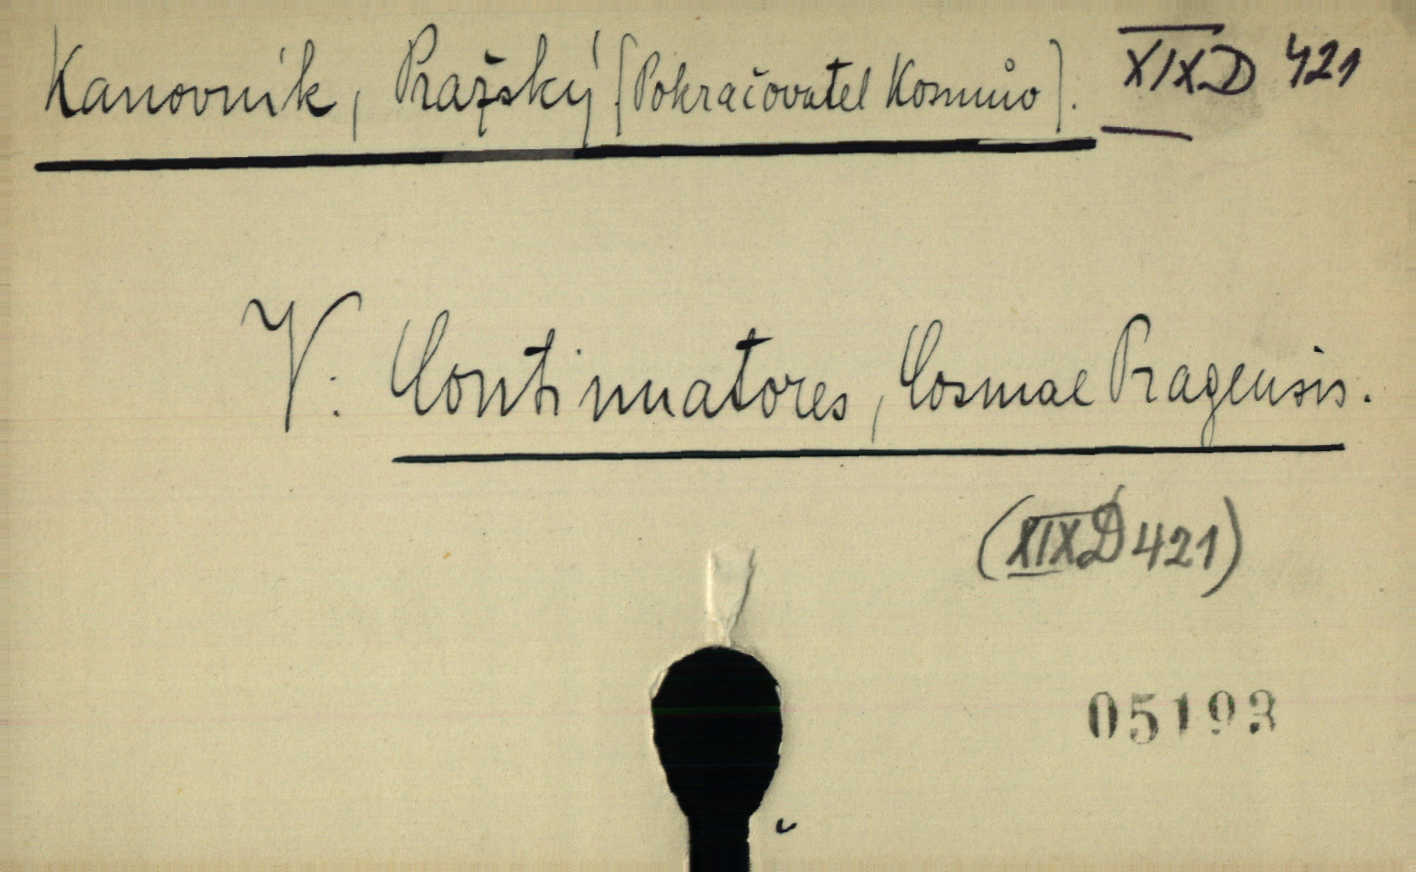 Kanovník, Pražský [Pokračovatel Kosmův]. XIX D 421
V: Continuatores, Cosmae Pragensis.
(XIX D 421)
05193